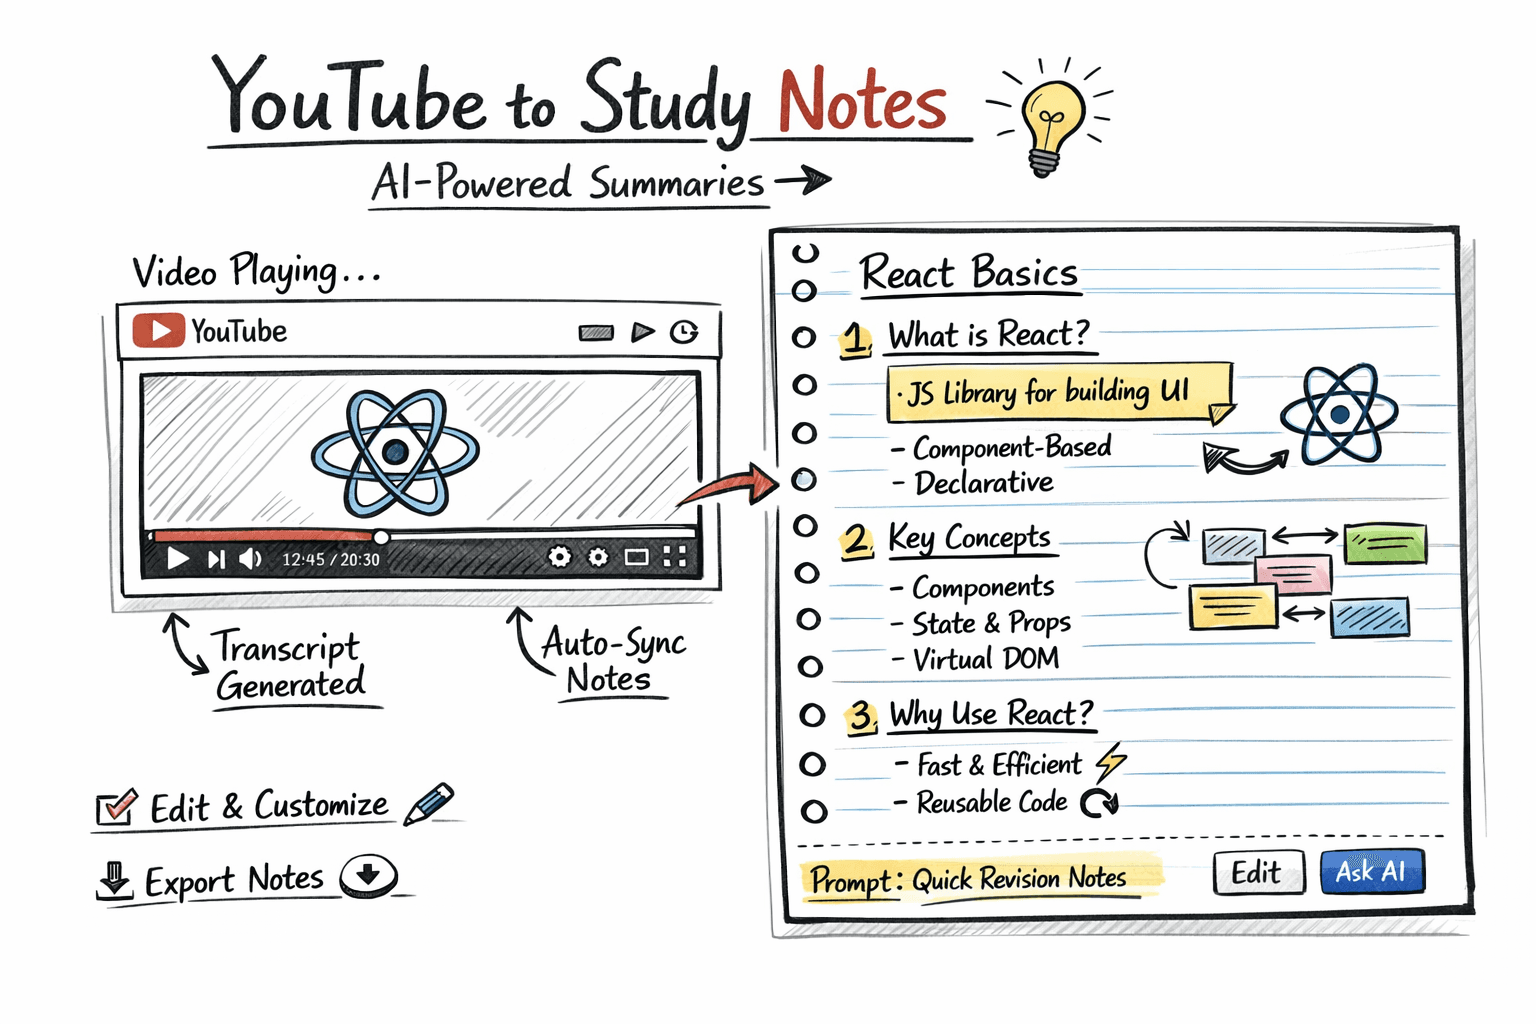 YouTube to Study Notes
AI-Powered Summaries
Video Playing...
YouTube
12:45 / 20:30
Transcript
Generated
Auto-Sync
Notes
Edit & Customize
Export Notes
React Basics
1. What is React?
· JS Library for building UI
- Component-Based
- Declarative
2. Key Concepts
- Components
- State & Props
- Virtual DOM
3. Why Use React?
- Fast & Efficient
- Reusable Code
Prompt: Quick Revision Notes
Edit
Ask AI